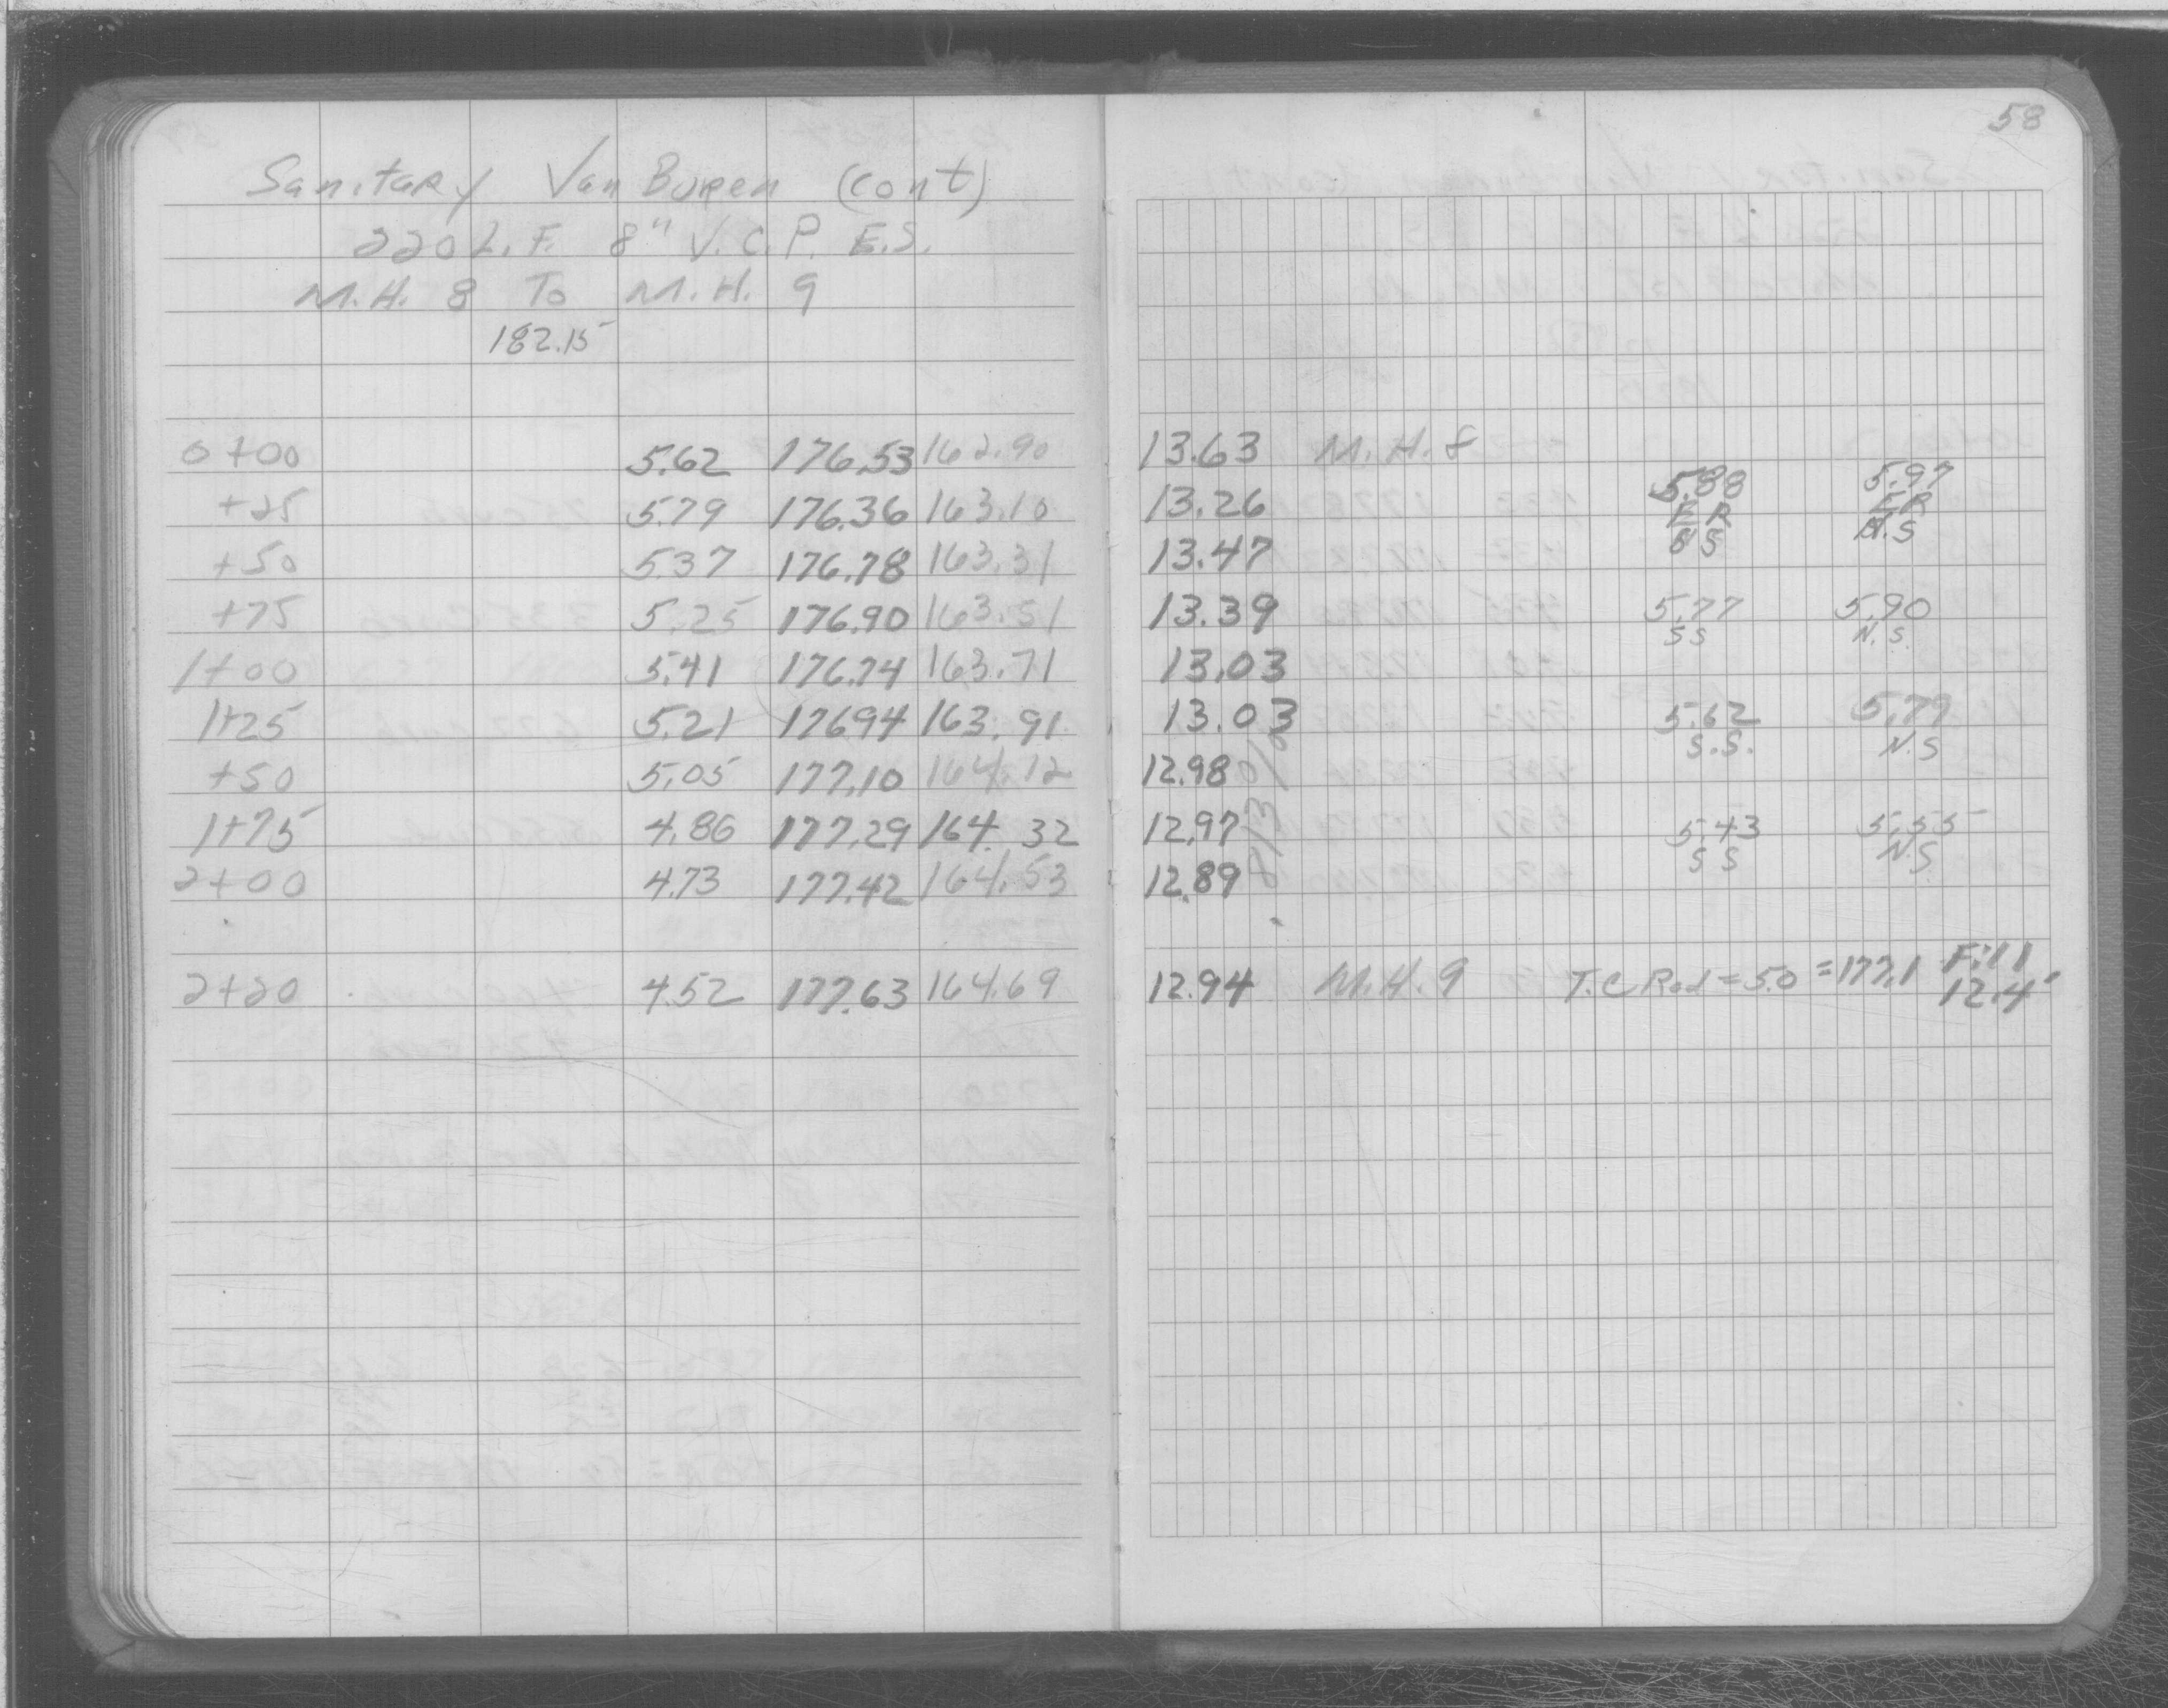 58
Sanitary Van Buren (cont)
220 L.F. 8" V.C.P. E.S.
M.H. 8 To M.H. 9
182.15
0+00 5.62 176.53 162.90 13.63 M.H. 8
+25 5.79 176.36 163.10 13.26 5.88 ER S S 5.97 ER N.S
+50 5.37 176.78 163.31 13.47
+75 5.25 176.90 163.51 13.39 5.77 S S 5.90 N.S.
1+00 5.41 176.74 163.71 13.03
1+25 5.21 17694 163.91 13.03 5.62 S.S. 5.79 N.S
+50 5.05 177.10 164.12 12.98
1+75 4.86 177.29 164.32 12.97 5.43 S S 5.55 N.S.
2+00 4.73 177.42 164.53 12.89
2+20 4.52 177.63 164.69 12.94 M.H. 9 T.C Rod = 5.0 = 177.1 Fill 12.4'